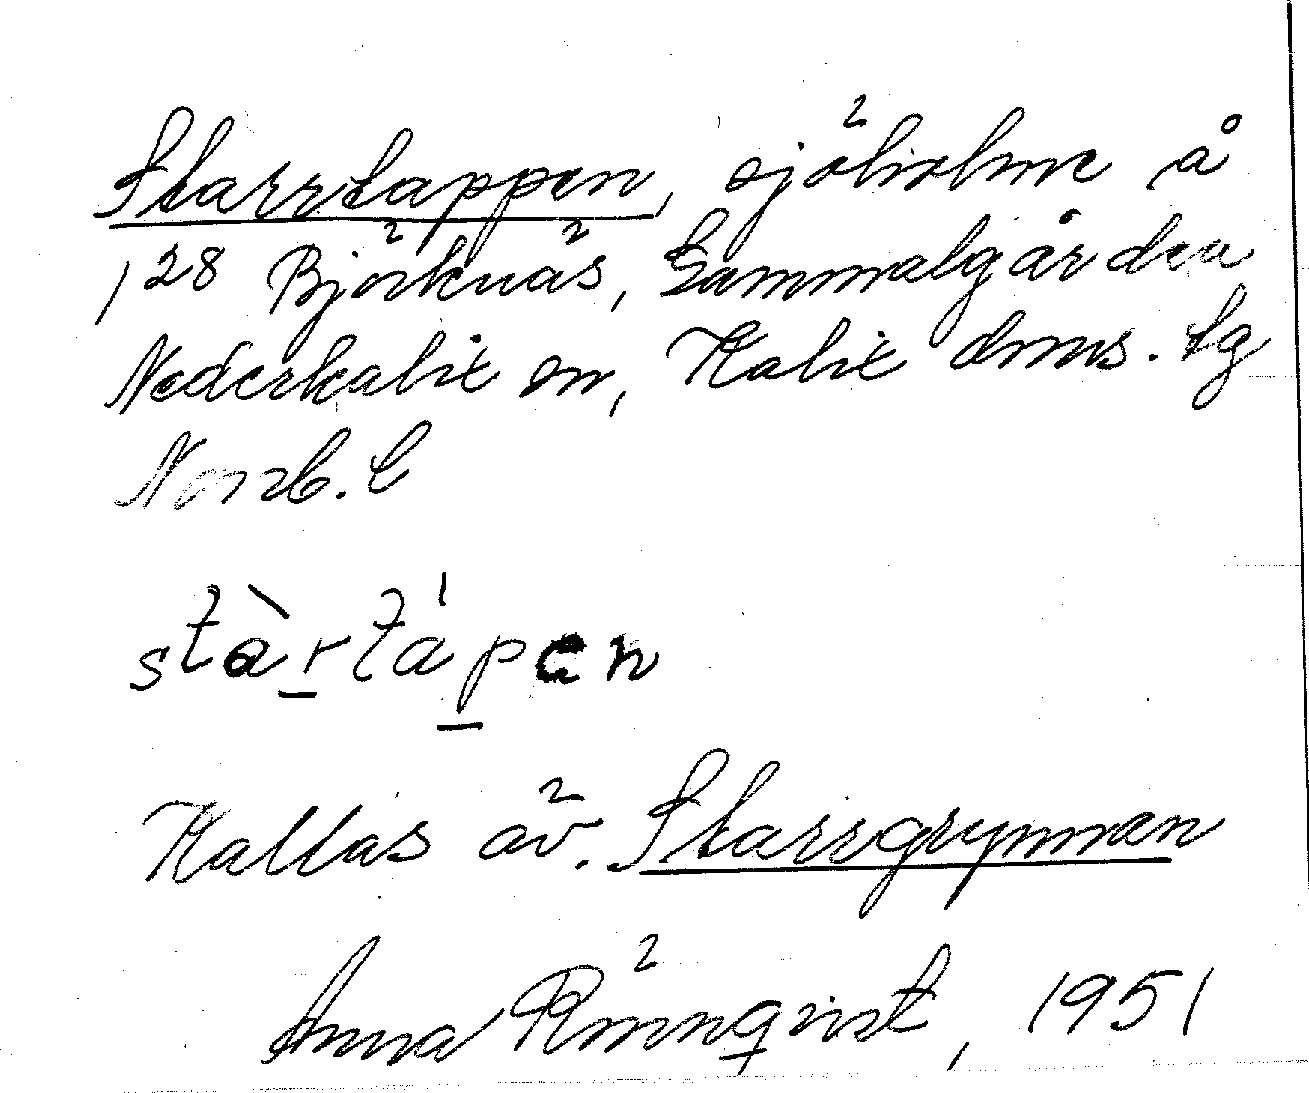 Starrtappen, sjöholme å
128 Björknäs, Gammalgården
Nederkalix sn, Kalix doms. lg
Norrb. l
stàrtápen
Kallas äv. Starrgrynnan
Anna Rönnqvist, 1951